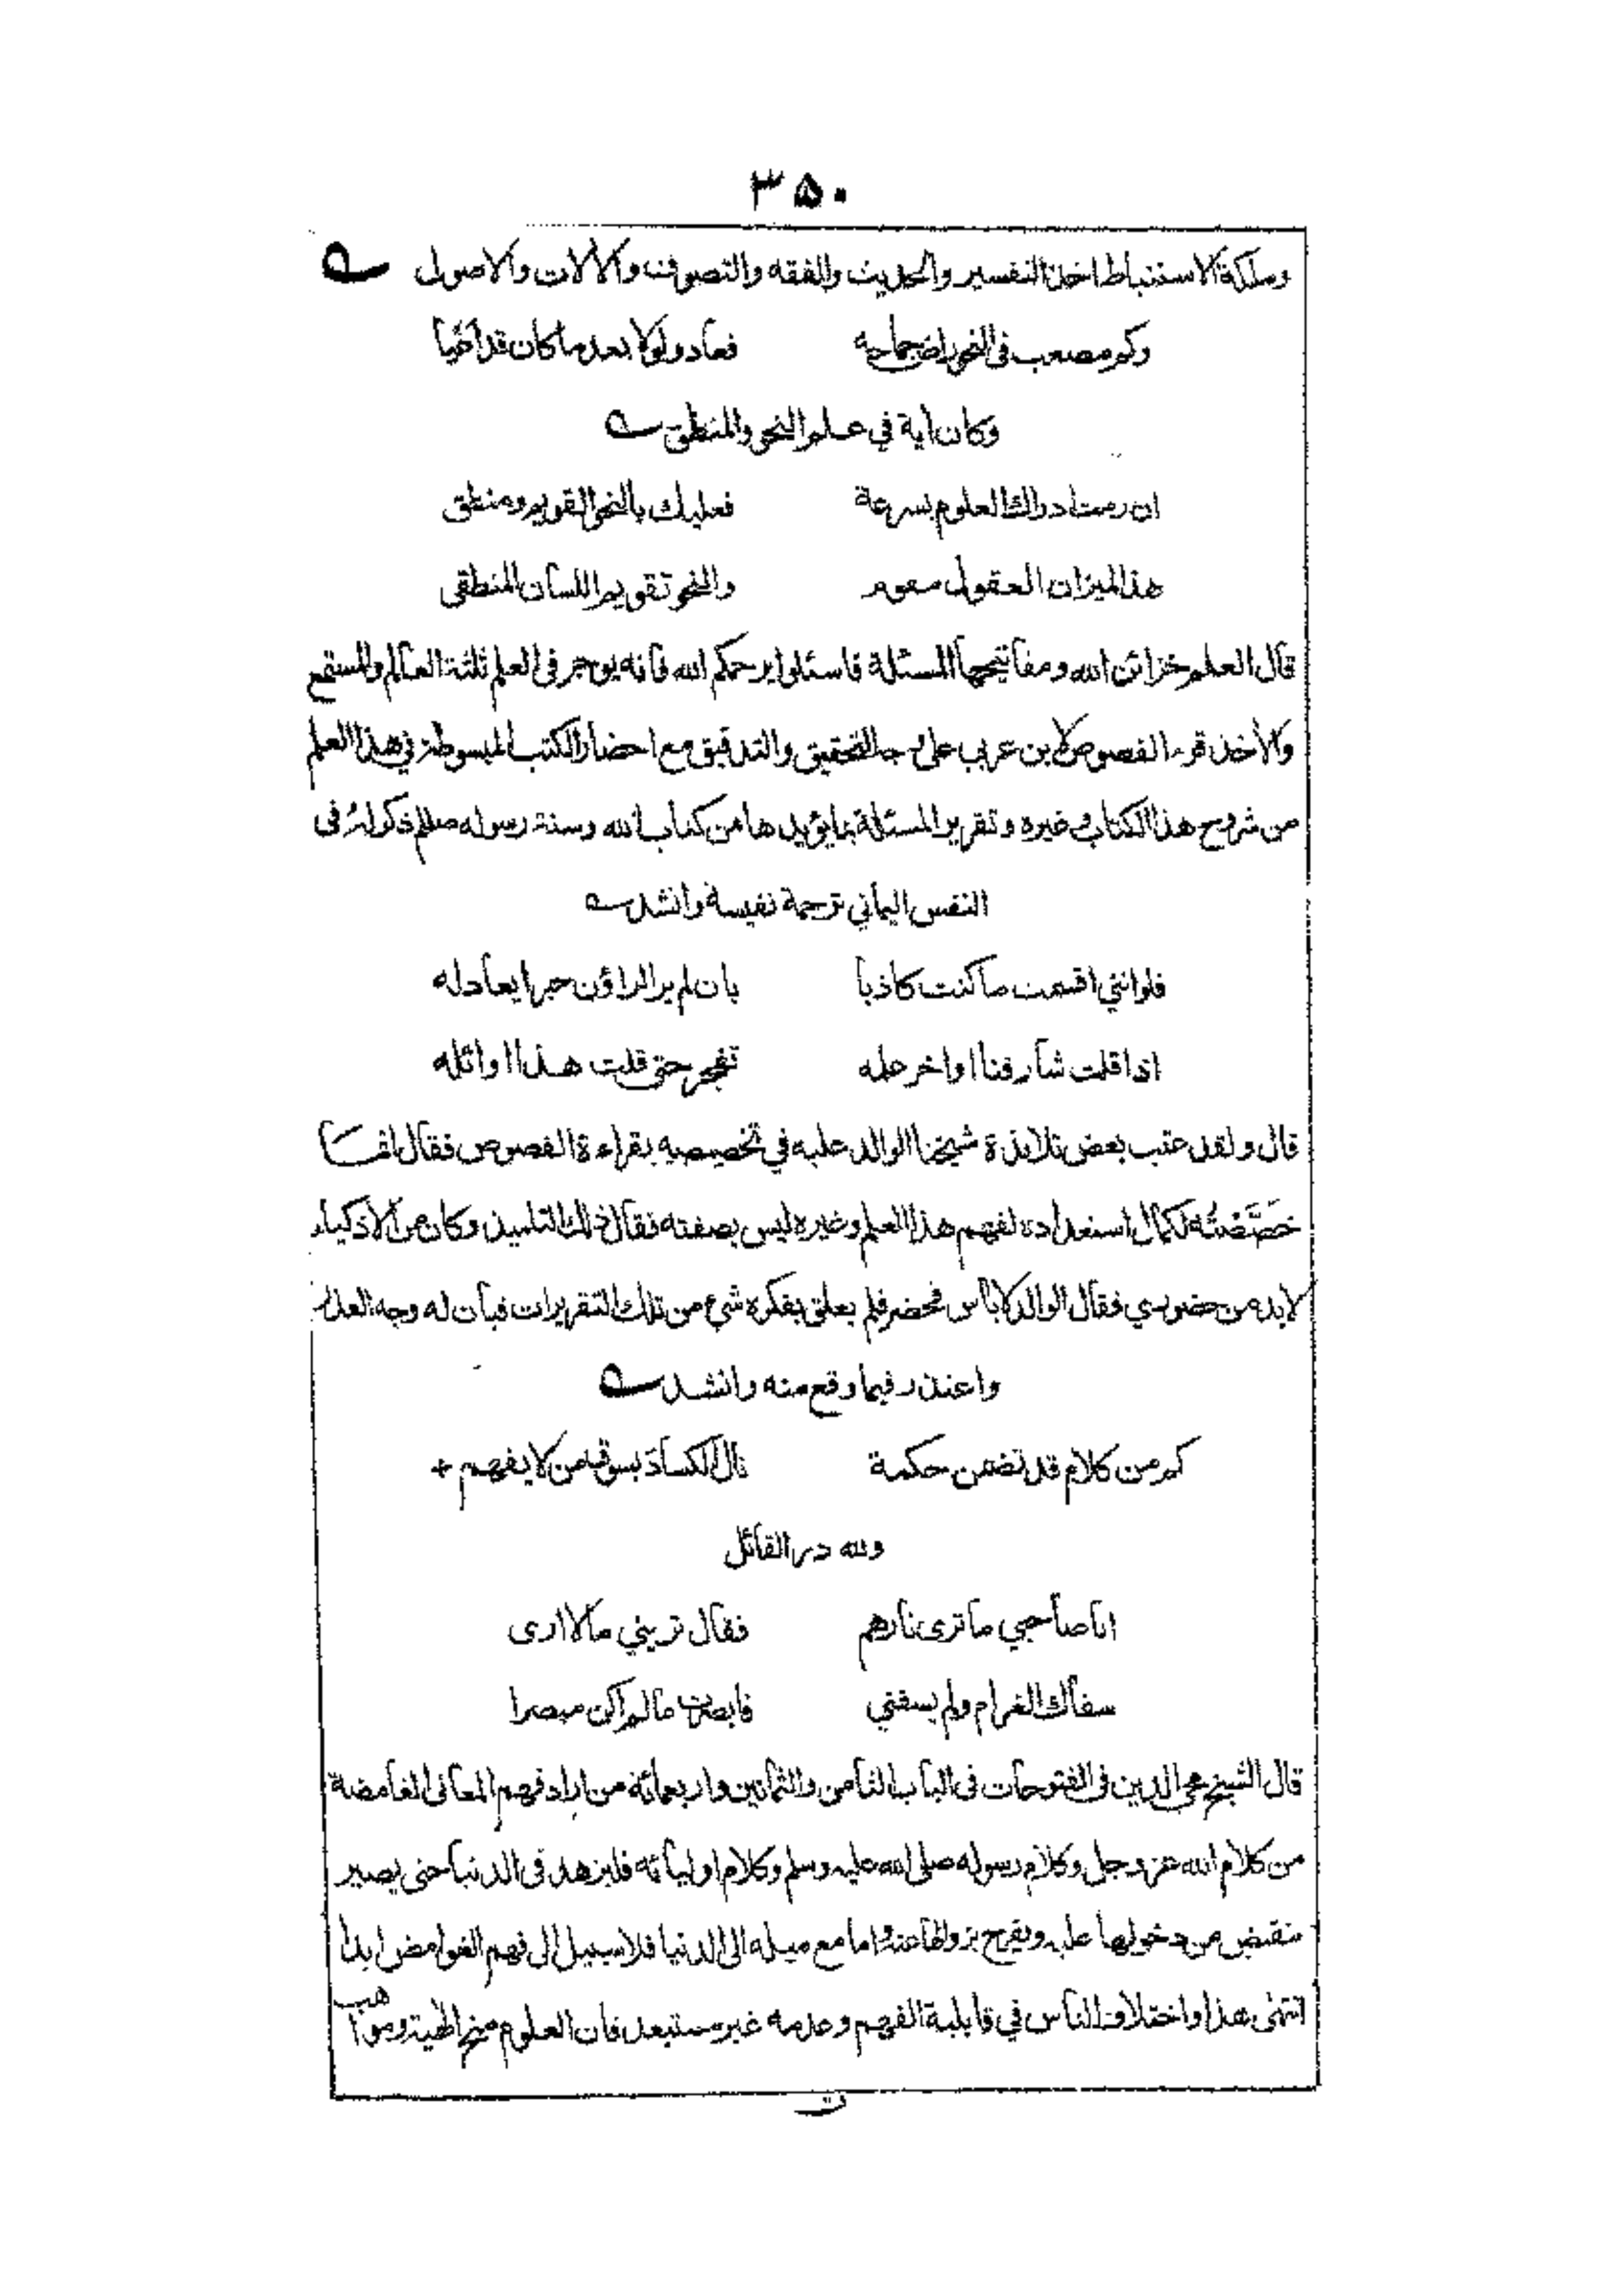 ۳۵۰
وملكة الاستنباط اخذ التفسير والحديث والفقه والتصوف والآلات والاصول
وكم مصعب في النحو راض جماحه فعاد ذلولا بعد ما كان قد
وكان آية في علم النحو والمنطق
ان رمت ادراك العلوم بسرعة فعليك بالنحو القويم ومنطق
هذا لميزان العقول مقوم والنحو تقويم اللسان المنطقي
قال العلم خزائن الله ومفاتيحها المسئلة فاسئلوا يرحمكم الله فانه يوجر في العلم ثلثة العالم والمستمع
والآخذ قرء الفصوص لابن عربي على وجه التحقيق والتدقيق مع احضار الكتب المبسوطة في هذا العلم
من شروح هذا الكتاب وغيره وتقرير المسئلة بما يؤيدها من كتاب الله وسنة رسوله صللم ذكر له في
النفس اليماني ترجمة نفيسة وانشد
فلو انني اقسمت ما كنت كاذبا بان لم ير الراؤن حبرا يعادله
اذا قلت شارفنا اواخر علمه تفجر حتى قلت هذا اوائله
قال ولقد عتب بعض تلامذة شيخنا الوالد عليه في تخصيصه بقراءة الفصوص فقال انما
خَصَّصْتُه لكمال استعداده لفهم هذا العلم وغيره ليس بصفته فقال ذلك التلميذ وكان من الاذكياء
لابد من حضوري فقال الوالد لا بأس فحضر فلم يعلق بفكره شيء من تلك التقريرات فبان له وجه العذر
واعتذر فيما وقع منه وانشد
كم من كلام قد تضمن حكمة نال الكساد بسوق من لا يفهم +
ولله در القائل
ايا صاحبي ما ترى نارهم فقال تريني ما لا ارى
سقاك الغرام ولم يسقني فابصرت ما لم اكن مبصرا
قال الشيخ محي الدين في الفتوحات في الباب الثامن والثمانين واربعمائة من اراد فهم المعاني الغامضة
من كلام الله عز وجل وكلام رسوله صلى الله عليه وسلم وكلام اوليائه فليزهد في الدنيا حتى يصير
ينقبض من دخولها عليه ويفرح بزوالها عنه واما مع ميله الى الدنيا فلا سبيل الى فهم الغوامض ابدا
انتهى هذا واختلاف الناس في قابلية الفهم وعدمه غير مستبعد فان العلوم منح الهية ومواهب